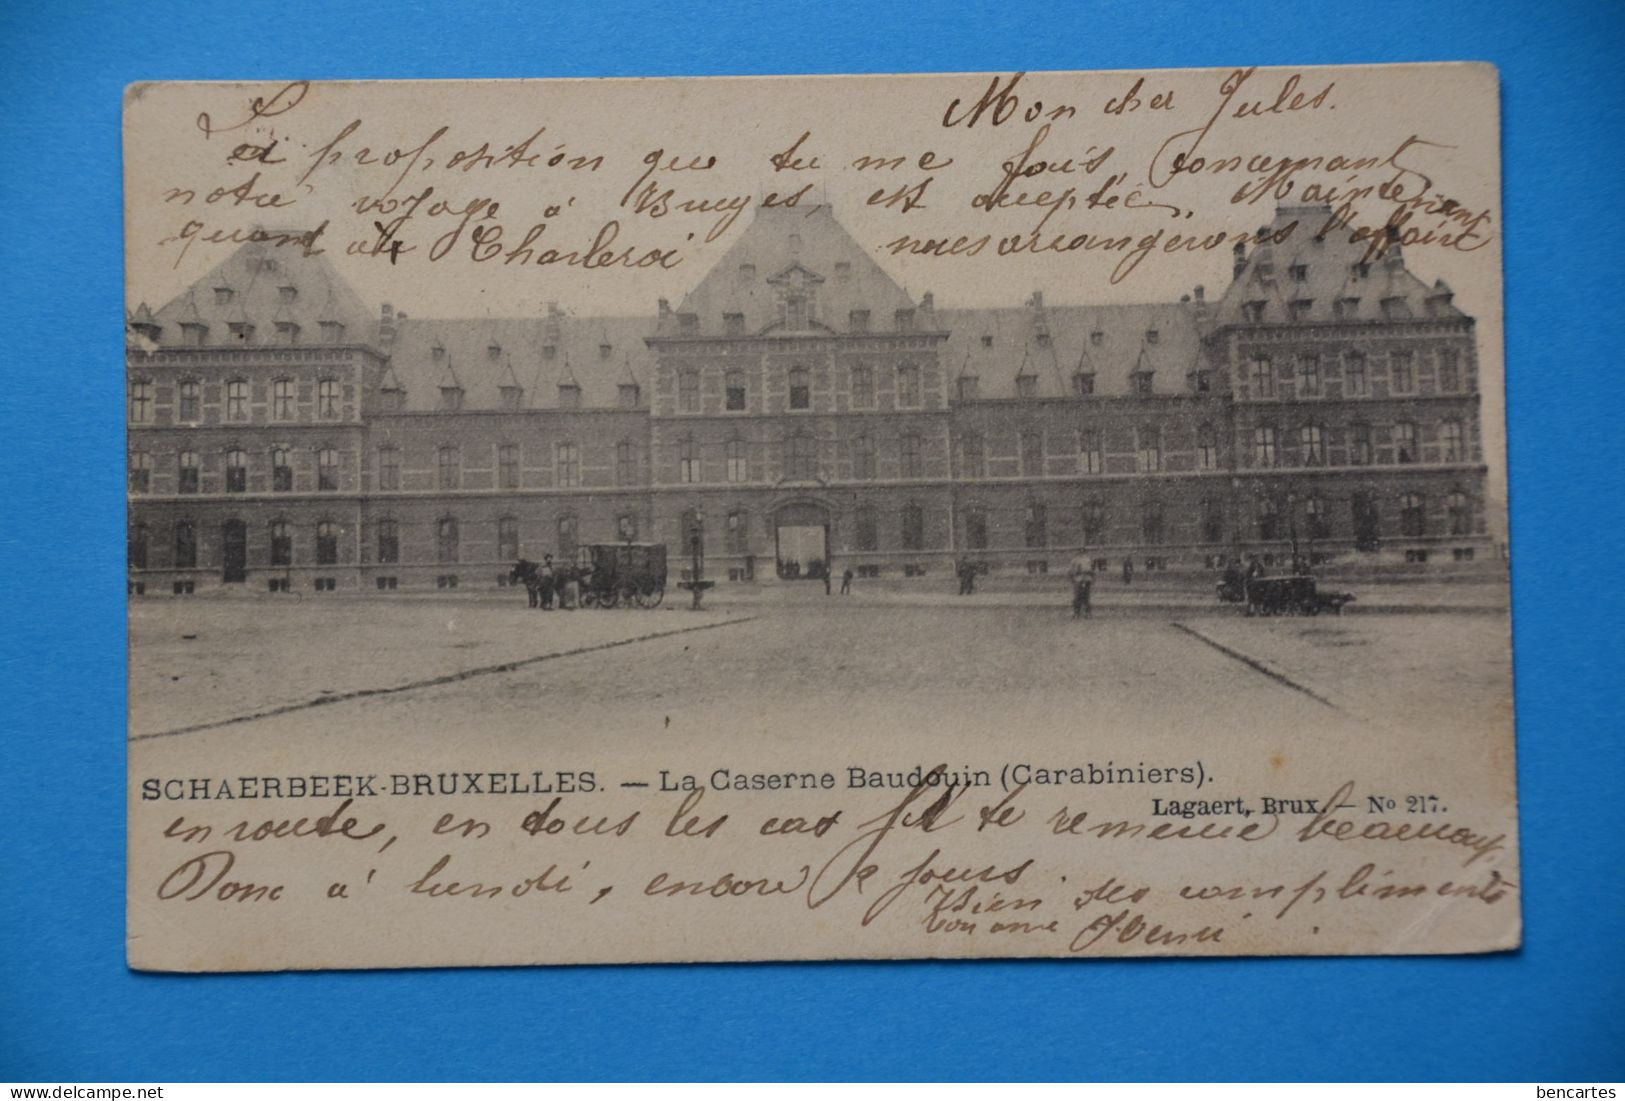 Mon cher Jules.
La proposition que tu me fais, concernant
notre voyage à Bruges, est acceptée, Maintenant
quant à Charleroi nous arrangerons l'affaire
SCHAERBEEK-BRUXELLES. — La Caserne Baudouin (Carabiniers).
Lagaert, Brux. — No 217.
en route, en tous les cas je te remercie beaucoup,
Donc à lundi, encore 2 jours.
Bien des compliments
ton ami Henri
delcampe.net
bencartes